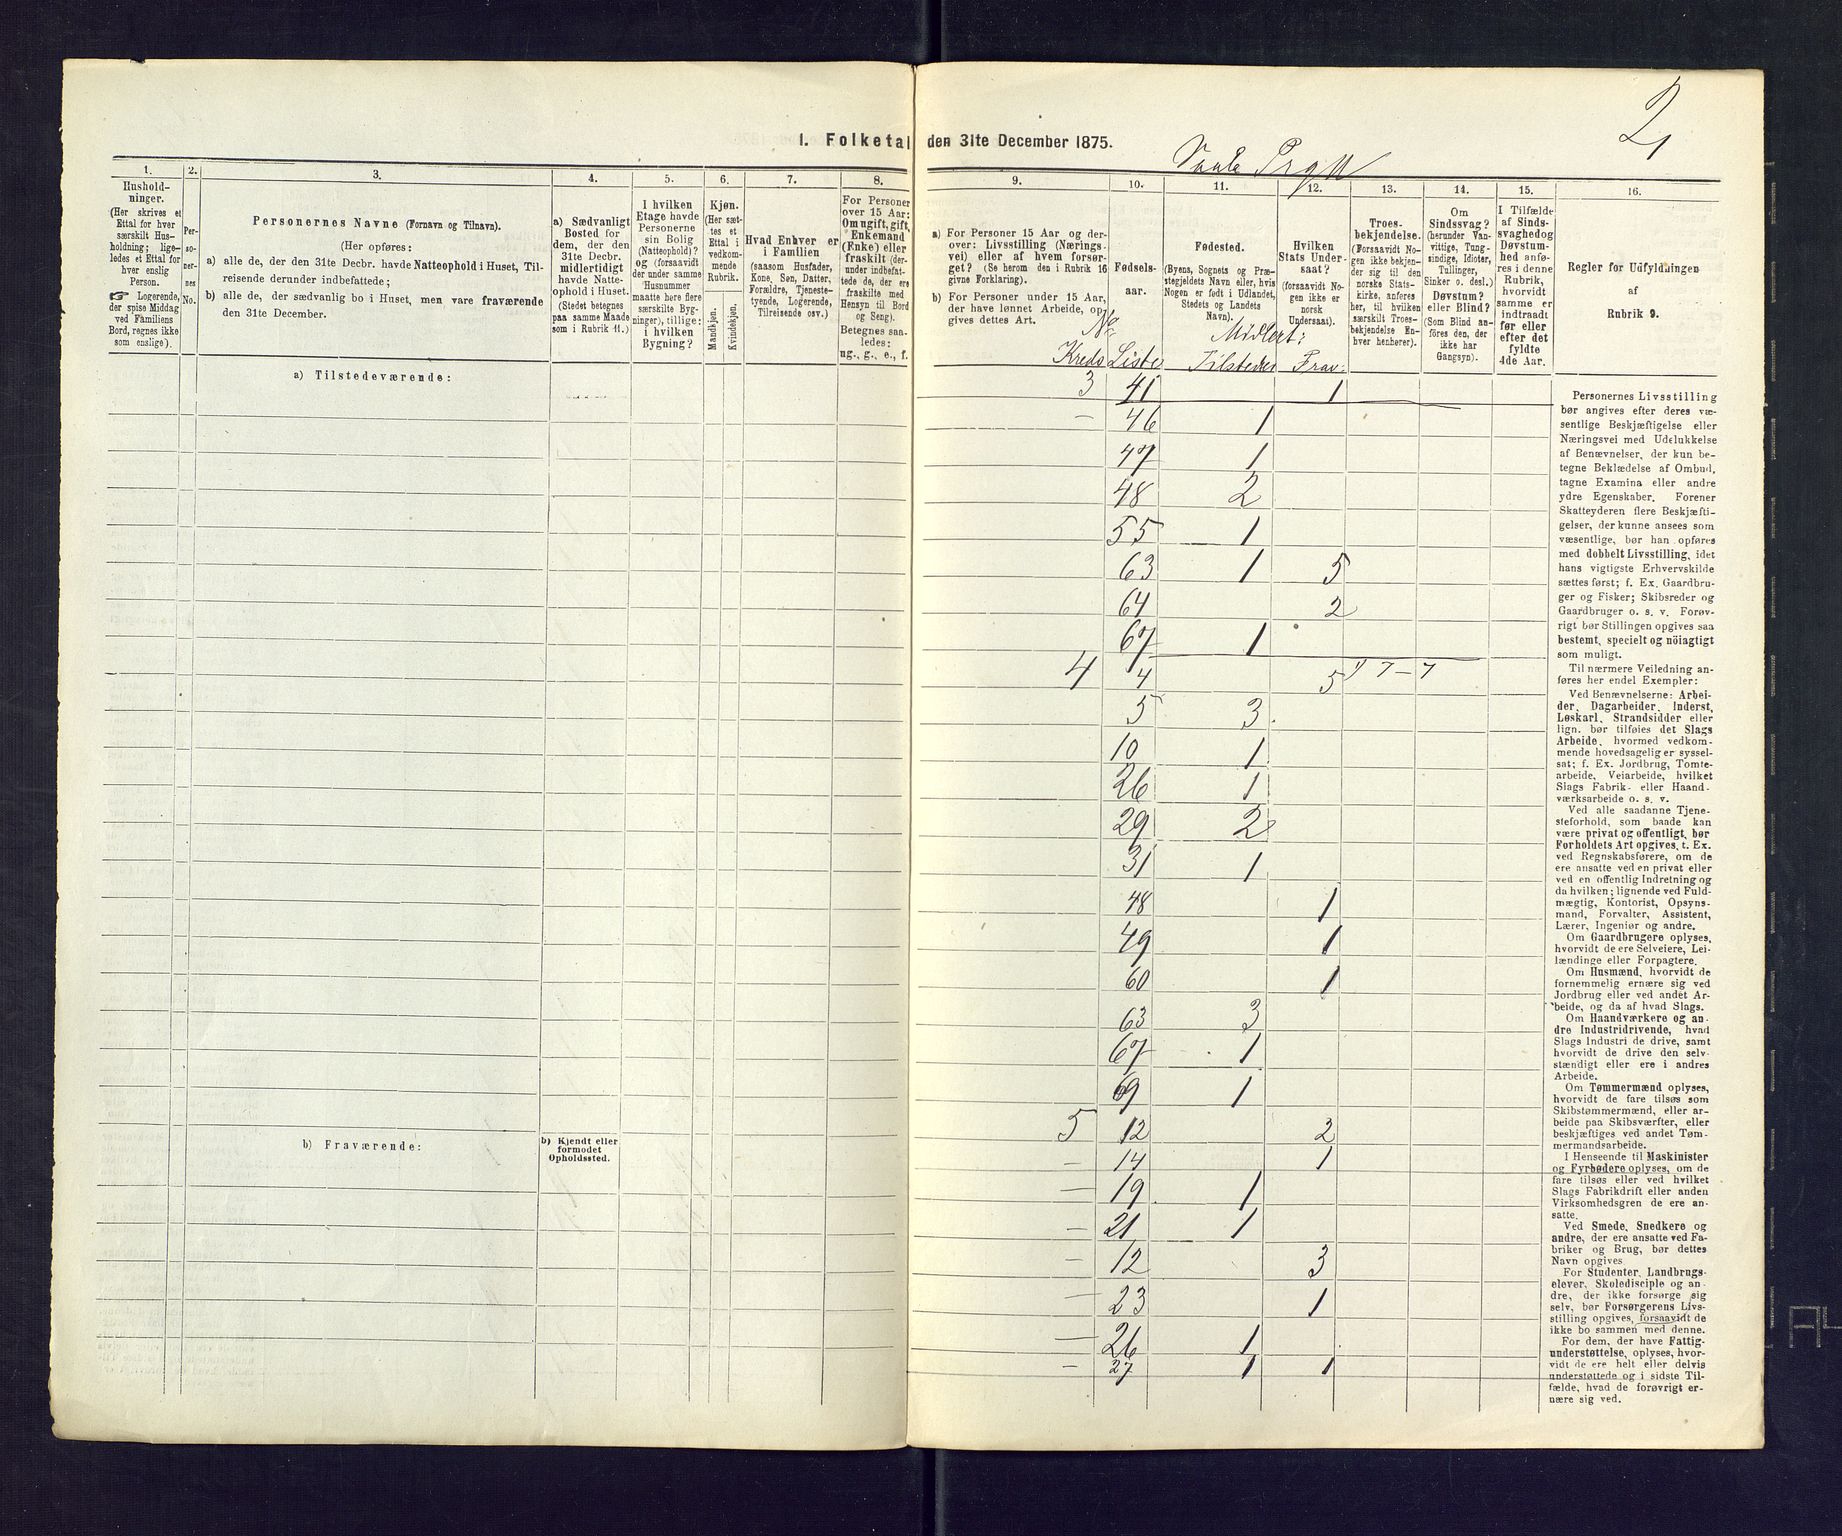 2
1. Folketal den 31te December 1875.
Prgj
1. 2. 3. 4. 5. 6. 7. 8. 9. 10. 11. 12. 13. 14. 15. 16.
Hushold-
ninger.
(Her skrives et
Ettal for hver
særskilt Hus-
holdning; lige-
ledes et Ettal for
hver enslig
Person.
☞ Logerende,
der spise Middag
ved Familiens
Bord, regnes ikke
som enslige).
Per-
so-
ner-
nes
No.
Personernes Navne (Fornavn og Tilnavn).
(Her opføres:
a) alle de, der den 31te Decbr. havde Natteophold i Huset, Til-
reisende derunder indbefattede;
b) alle de, der sædvanlig bo i Huset, men vare fraværende
den 31te December.
a) Sædvanligt
Bosted for
dem, der den
31te Decbr.
midlertidigt
havde Natte-
ophold i Huset.
(Stedet betegnes
paa samme Maade
som i Rubrik 11.)
I hvilken
Etage havde
Personerne
sin Bolig
(Natteophold)?
og (forsaavidt
der under samme
Husnummer
maatte høre flere
særskilte Byg-
ninger), tillige:
i hvilken
Bygning?
Kjøn.
(Her sæt-
tes et
Ettal i
vedkom-
mende
Rubrik.
Mandkjøn.
Kvindekjøn.
Hvad Enhver er
i Familien
(saasom Husfader,
Kone, Søn, Datter,
Forældre, Tjeneste-
tyende, Logerende,
Tilreisende osv.)
For Personer
over 15 Aar:
Om ugift, gift,
Enkemand
(Enke) eller
fraskilt (der-
under indbefat-
tede de, der ere
fraskilte med
Hensyn til Bord
og Seng).
Betegnes saa-
ledes:
ug., g., e., f.
a) For Personer 15 Aar og der-
over: Livsstilling (Nærings-
vei) eller af hvem forsør-
get? (Se herom den i Rubrik 16
givne Forklaring).
b) For Personer under 15 Aar,
der have lønnet Arbeide, op-
gives dettes Art.
No
Kreds Liste
Fødsels-
aar.
Fødested.
(Byens, Sognets og Præ-
stegjeldets Navn eller, hvis
Nogen er født i Udlandet,
Stedets og Landets
Navn).
Midlert:
Tilstedev Frav:
Hvilken
Stats Under-
saat?
(forsaavidt No-
gen ikke er
norsk
Undersaat).
Troes-
bekjendelse.
(Forsaavidt No-
gen ikke bekjen-
der sig til den
norske Stats-
kirke, anføres
her, til hvilken
særskilt Troes-
bekjendelse En-
hver henhører).
Om
Sindssvag?
(herunder Van-
vittige, Tung-
sindige, Idioter,
Tullinger,
Sinker o. desl.)
Døvstum?
eller Blind?
(Som Blind an-
føres den, der
ikke har
Gangsyn).
I Tilfælde
af Sinds-
svaghed og
Døvstum-
hed anfø-
res i denne
Rubrik,
hvorvidt
samme er
indtraadt
før eller
efter det
fyldte
4de Aar.
Regler for Udfyldningen
af
Rubrik 9.
a) Tilstedeværende:
b) Fraværende:
b) Kjendt eller
formodet
Opholdssted.
3 41 1
– 46 1
47 1
48 2
55 1
63 1 5
64 2
67 1
4 4 5 1/ 7 – 7
5 3.
10 1
26 1
29 2
31 1
48 1
49 1
60 1
63 3
67 1
69 1
5 12 2
– 14 1
– 19 1
– 21 1
– 12 3
– 23 1
– 26 1
– 27 1 1
Personernes Livsstilling
bør angives efter deres væ-
sentlige Beskjæftigelse eller
Næringsvei med Udelukkelse
af Benævnelser, der kun be-
tegne Beklædelse af Ombud,
tagne Examina eller andre
ydre Egenskaber. Forener
Skatteyderen flere Beskjæfti-
gelser, der kunne ansees som
væsentlige, bør han opføres
med dobbelt Livsstilling, idet
hans vigtigste Erhvervskilde
sættes først; f. Ex. Gaardbru-
ger og Fisker; Skibsreder og
Gaardbruger o. s. v. Forøv-
rigt bør Stillingen opgives saa
bestemt, specielt og nöiagtigt
som muligt.
Til nærmere Veiledning an-
føres her endel Exempler:
Ved Benævnelserne: Arbei-
der, Dagarbeider, Inderst,
Løskarl, Strandsidder eller
lign. bør tilføies det Slags
Arbeide, hvormed vedkom-
mende hovedsagelig er syssel-
sat; f. Ex. Jordbrug, Tomte-
arbeide, Veiarbeide, hvilket
Slags Fabrik- eller Haand-
værksarbeide o. s. v.
Ved alle saadanne Tjene-
steforhold, som baade kan
være privat og offentligt, bør
Forholdets Art opgives, t. Ex.
ved Regnskabsførere, om de
ere ansatte ved en privat eller
ved en offentlig Indretning og
da hvilken; lignende ved Fuld-
mægtig, Kontorist, Opsyns-
mand, Forvalter, Assistent,
Lærer, Ingeniør og andre.
Om Gaardbrugere oplyses,
hvorvidt de ere Selveiere, Lei-
lændinge eller Forpagtere.
Om Husmænd, hvorvidt de
fornemmelig ernære sig ved
Jordbrug eller ved andet Ar-
beide, og da af hvad Slags.
Om Haandværkere og an-
dre Industridrivende, hvad
Slags Industri de drive, samt
hvorvidt de drive den selv-
stændigt eller ere i andres
Arbeide.
Om Tømmermænd oplyses,
hvorvidt de fare tilsøs som
Skibstømmermænd, eller ar-
beide paa Skibsværfter, eller
beskjæftiges ved andet Tøm-
mermandsarbeide.
I Henseende til Maskinister
og Fyrbødere oplyses, om de
fare tilsøs eller ved hvilket
Slags Fabrikdrift eller anden
Virksomhedsgren de ere an-
satte.
Ved Smede, Snedkere og
andre, der ere ansatte ved Fa-
briker og Brug, bør dettes
Navn opgives
For Studenter, Landbrugs-
elever, Skoledisciple og an-
dre, der ikke forsørge sig
selv, bør Forsørgerens Livs-
stilling opgives, forsaavidt de
ikke bo sammen med denne.
For dem, der have Fattig-
understøttelse, oplyses, hvor-
vidt de ere helt eller delvis
understøttede og i sidste Til-
fælde, hvad de forøvrigt er-
nære sig ved.
A4